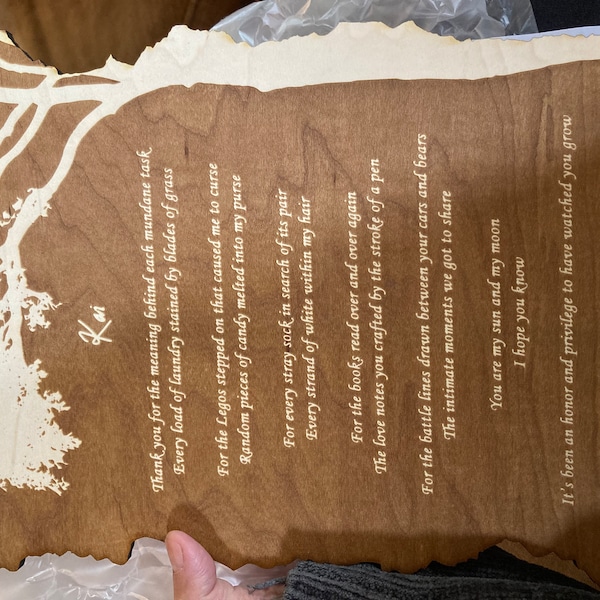 Kai
Thank you for the meaning behind each mundane task
Every load of laundry stained by blades of grass
For the Legos stepped on that caused me to curse
Random pieces of candy melted into my purse
For every stray sock in search of its pair
Every strand of white within my hair
For the books read over and over again
The love notes you crafted by the stroke of a pen
For the battle lines drawn between your cars and bears
The intimate moments we got to share
You are my sun and my moon
I hope you know
It's been an honor and privilege to have watched you grow